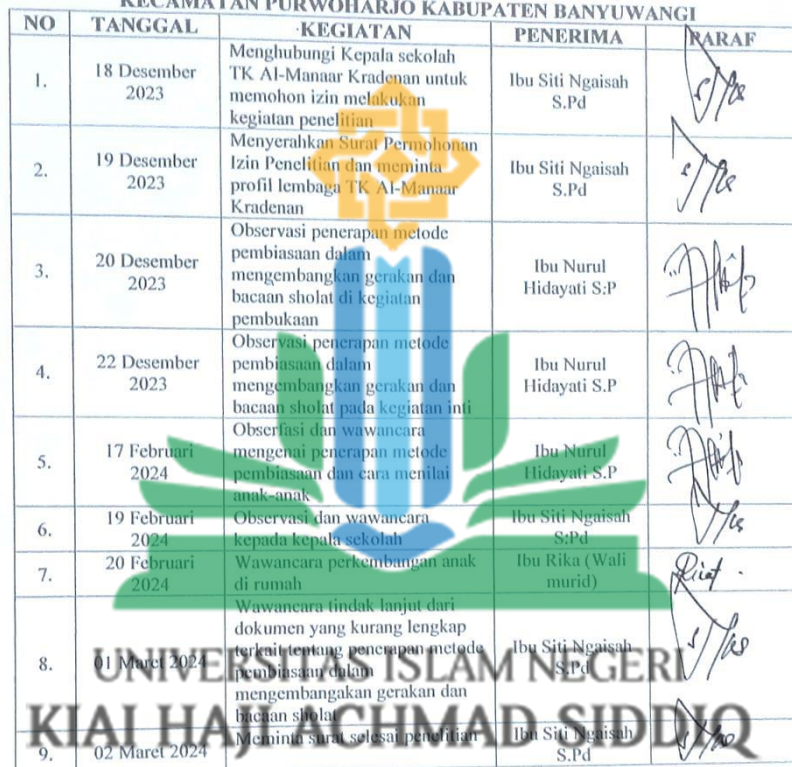 KECAMATAN PURWOHARJO KABUPATEN BANYUWANGI
NO TANGGAL KEGIATAN PENERIMA PARAF
1. 18 Desember 2023 Menghubungi Kepala sekolah TK Al-Manaar Kradenan untuk memohon izin melakukan kegiatan penelitian Ibu Siti Ngaisah S.Pd
2. 19 Desember 2023 Menyerahkan Surat Permohonan Izin Penelitian dan meminta profil lembaga TK Al-Manaar Kradenan Ibu Siti Ngaisah S.Pd
3. 20 Desember 2023 Observasi penerapan metode pembiasaan dalam mengembangkan gerakan dan bacaan sholat di kegiatan pembukaan Ibu Nurul Hidayati S:P
4. 22 Desember 2023 Observasi penerapan metode pembiasaan dalam mengembangkan gerakan dan bacaan sholat pada kegiatan inti Ibu Nurul Hidayati S.P
5. 17 Februari 2024 Obserfasi dan wawancara mengenai penerapan metode pembiasaan dan cara menilai anak-anak Ibu Nurul Hidayati S.P
6. 19 Februari 2024 Observasi dan wawancara kepada kepala sekolah Ibu Siti Ngaisah S:Pd
7. 20 Februari 2024 Wawancara perkembangan anak di rumah Ibu Rika (Wali murid)
8. 01 Maret 2024 Wawancara tindak lanjut dari dokumen yang kurang lengkap terkait tentang penerapan metode pembiasaan dalam mengembangakan gerakan dan bacaan sholat Ibu Siti Ngaisah S.Pd
9. 02 Maret 2024 Meminta surat selesai penelitian Ibu Siti Ngaisah S.Pd
UNIVERSITAS ISLAM NEGERI
KIAI HAJI ACHMAD SIDDIQ